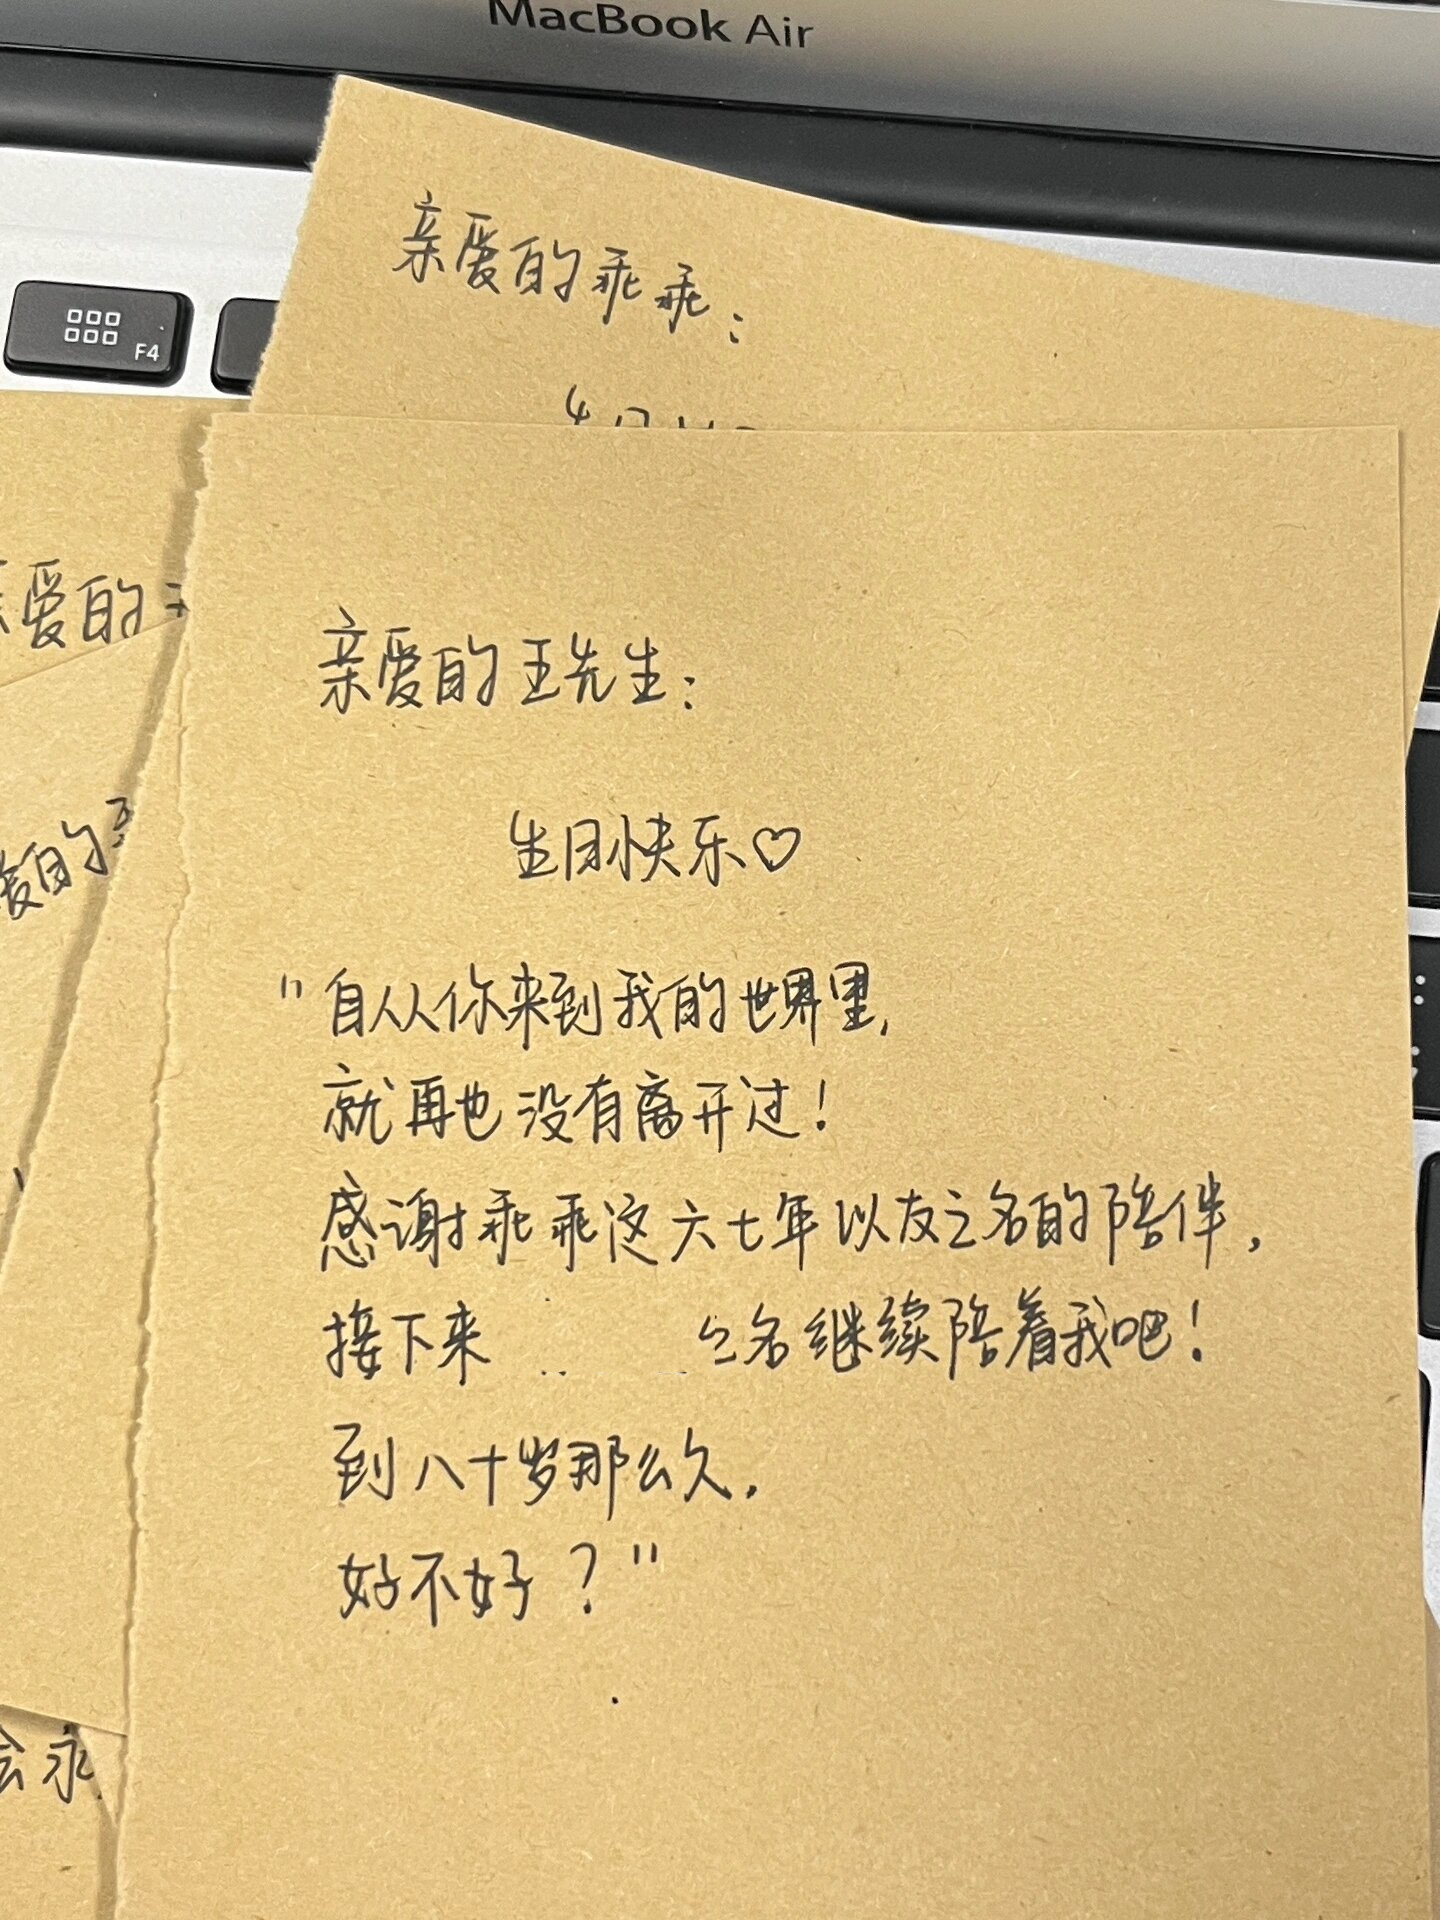 MacBook Air
F4
亲爱的乖乖:
爱的
爱的
亲爱的王先生:
生日快乐♡
"自从你来到我的世界里,
就再也没有离开过!
感谢乖乖这六七年以友之名的陪伴,
接下来 之名继续陪着我吧!
到八十岁那么久,
好不好?"
会永